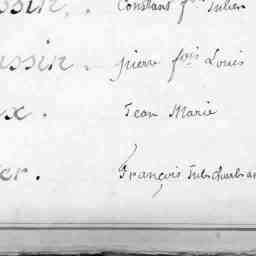 ssin. Constant f.s Julien
ussin. pierre f.ois Louis
x. Jean Marie
er. François Jules Charles